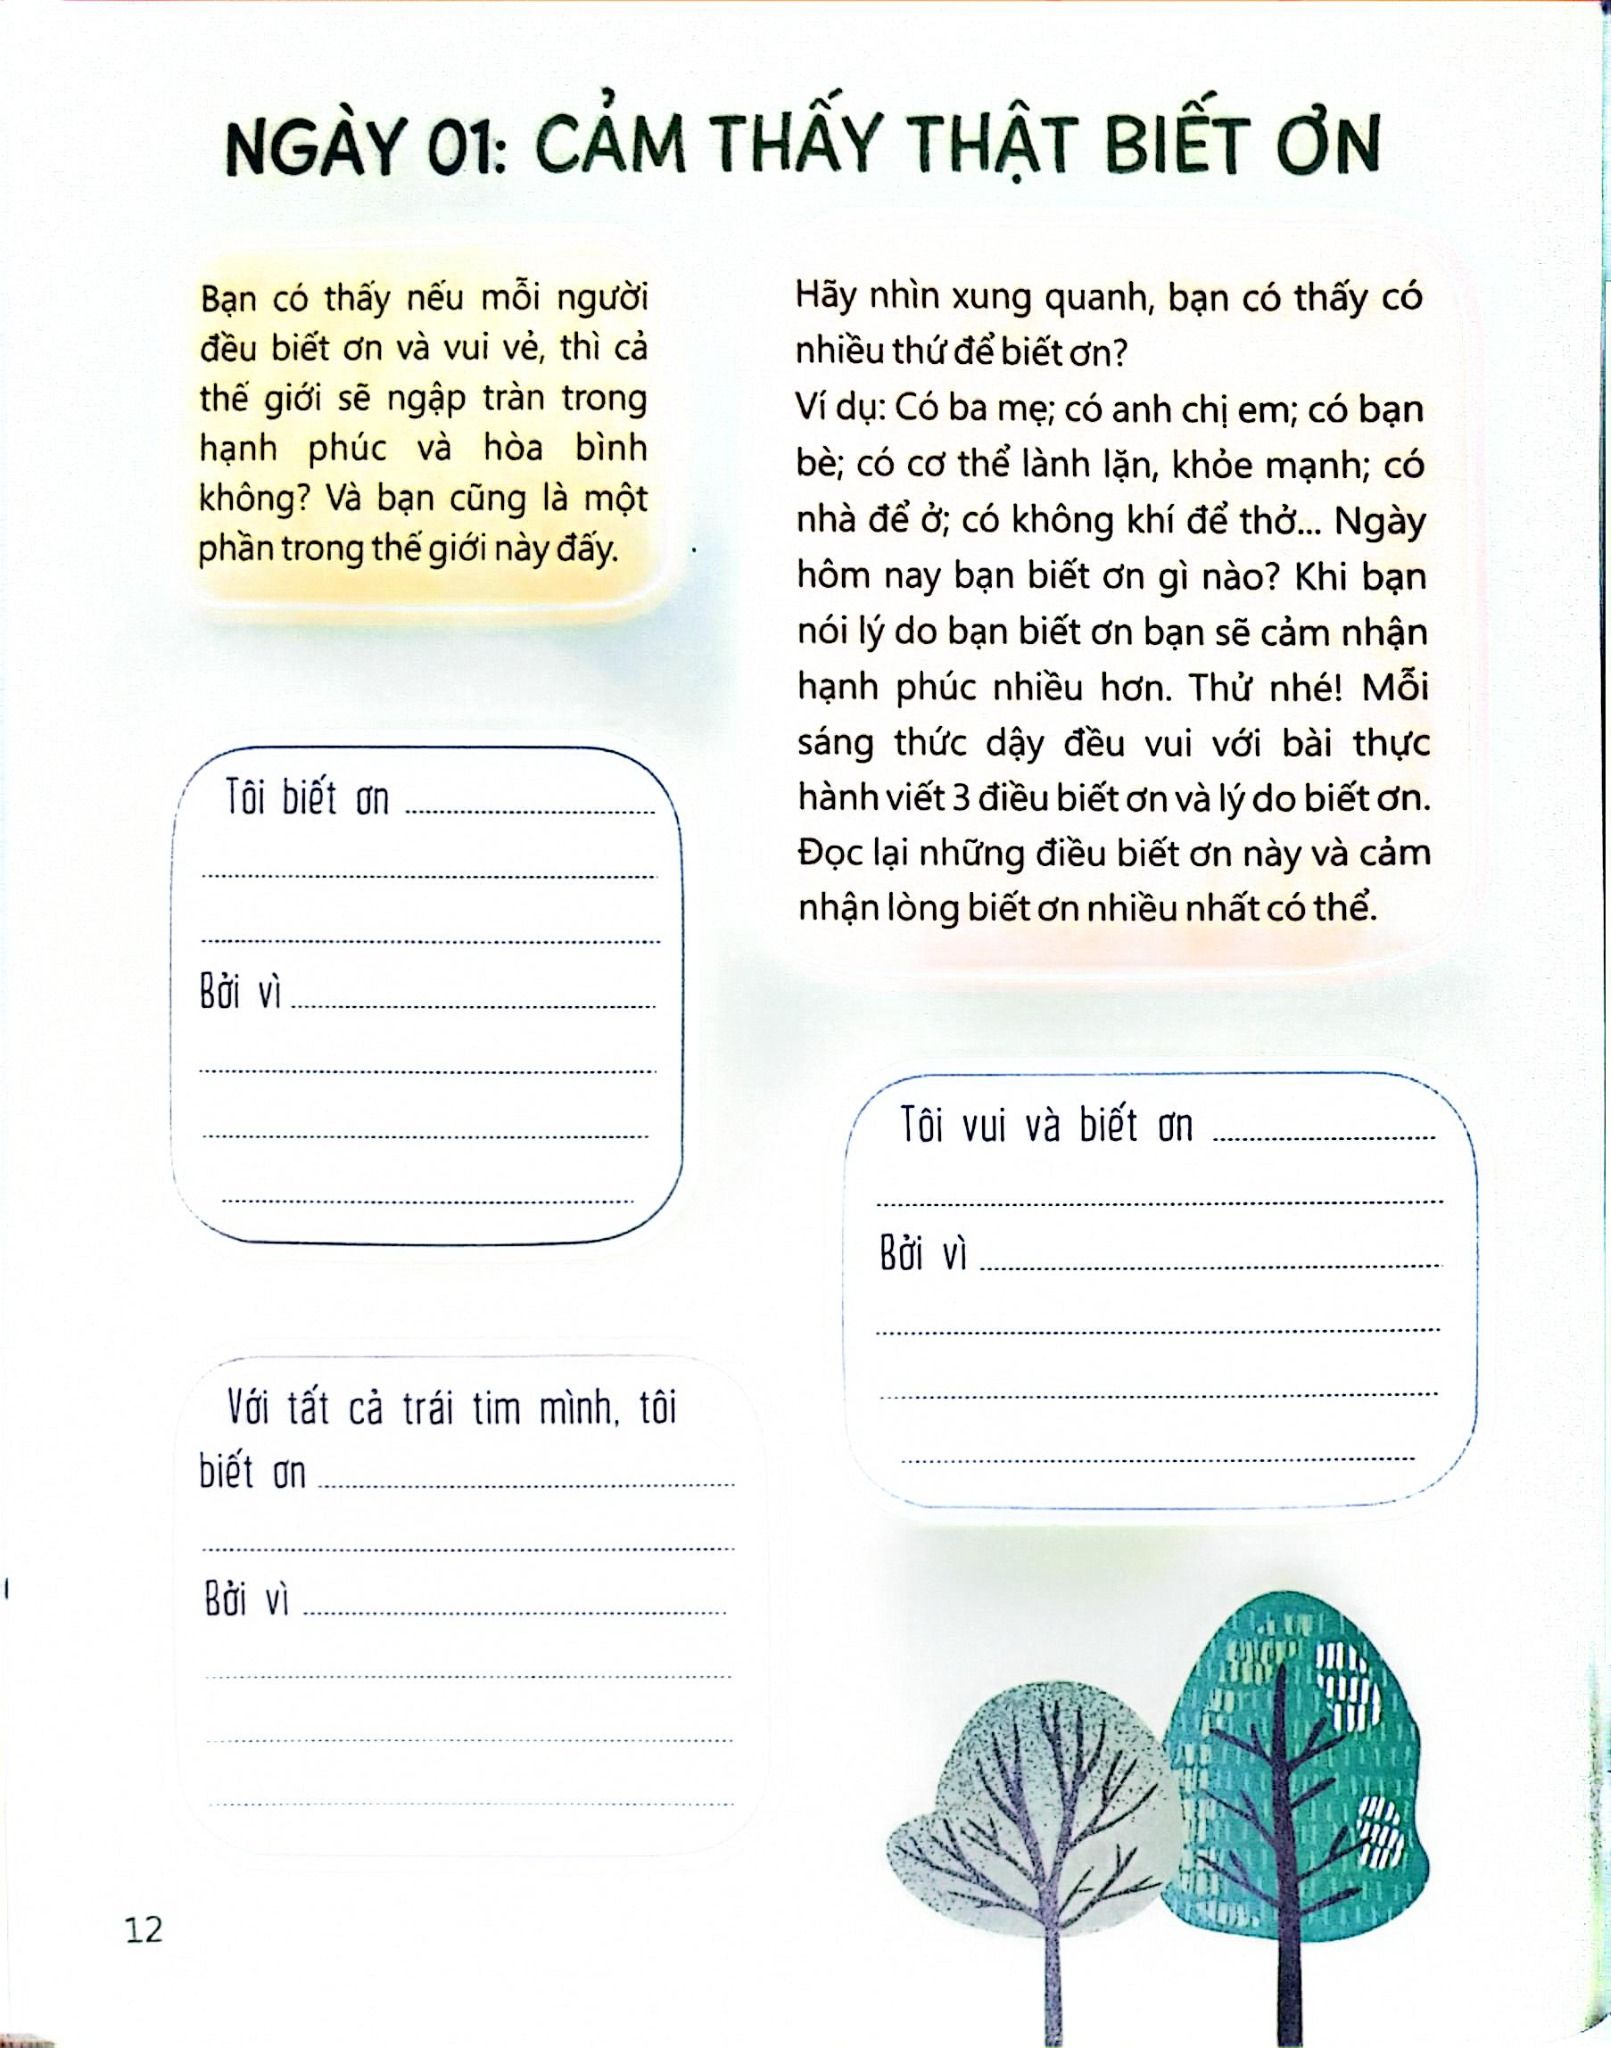 NGÀY 01: CẢM THẤY THẬT BIẾT ƠN
Bạn có thấy nếu mỗi người
đều biết ơn và vui vẻ, thì cả
thế giới sẽ ngập tràn trong
hạnh phúc và hòa bình
không? Và bạn cũng là một
phần trong thế giới này đấy.
Hãy nhìn xung quanh, bạn có thấy có
nhiều thứ để biết ơn?
Ví dụ: Có ba mẹ; có anh chị em; có bạn
bè; có cơ thể lành lặn, khỏe mạnh; có
nhà để ở; có không khí để thở... Ngày
hôm nay bạn biết ơn gì nào? Khi bạn
nói lý do bạn biết ơn bạn sẽ cảm nhận
hạnh phúc nhiều hơn. Thử nhé! Mỗi
sáng thức dậy đều vui với bài thực
hành viết 3 điều biết ơn và lý do biết ơn.
Đọc lại những điều biết ơn này và cảm
nhận lòng biết ơn nhiều nhất có thể.
Tôi biết ơn
Bởi vì
Tôi vui và biết ơn
Bởi vì
Với tất cả trái tim mình, tôi
biết ơn
Bởi vì
12